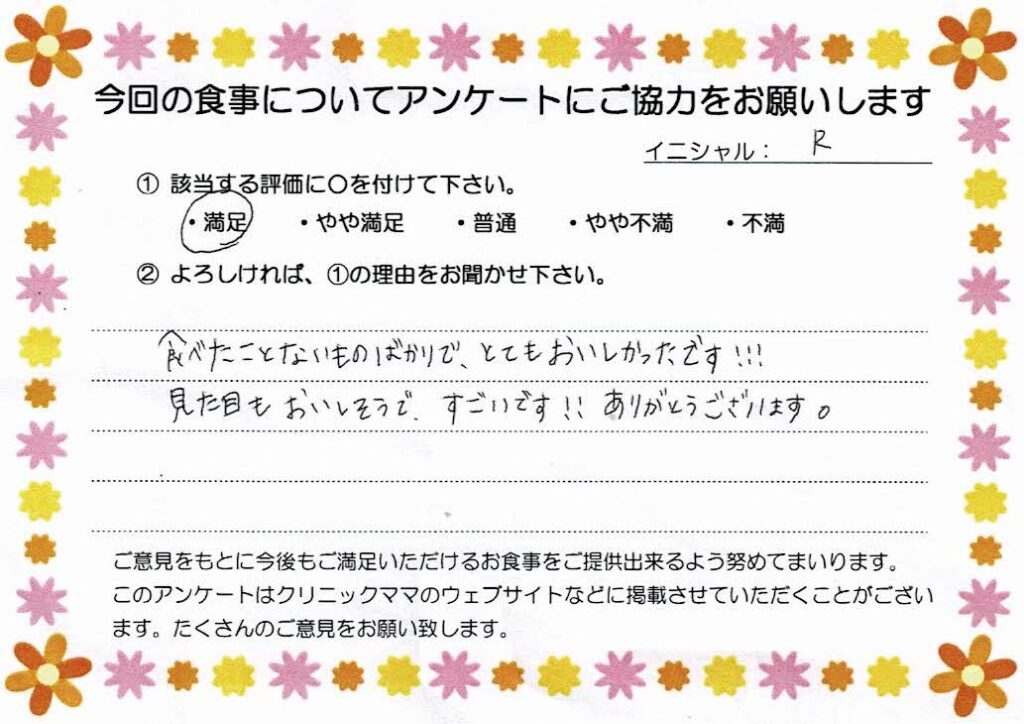 今回の食事についてアンケートにご協力をお願いします
イニシャル： R
① 該当する評価に〇を付けて下さい。
・満足 ・やや満足 ・普通 ・やや不満 ・不満
② よろしければ、①の理由をお聞かせ下さい。
食べたことないものばかりで、とてもおいしかったです!!!
見た目もおいしそうで、すごいです!! ありがとうございます。
ご意見をもとに今後もご満足いただけるお食事をご提供出来るよう努めてまいります。
このアンケートはクリニックママのウェブサイトなどに掲載させていただくことがござい
ます。たくさんのご意見をお願い致します。